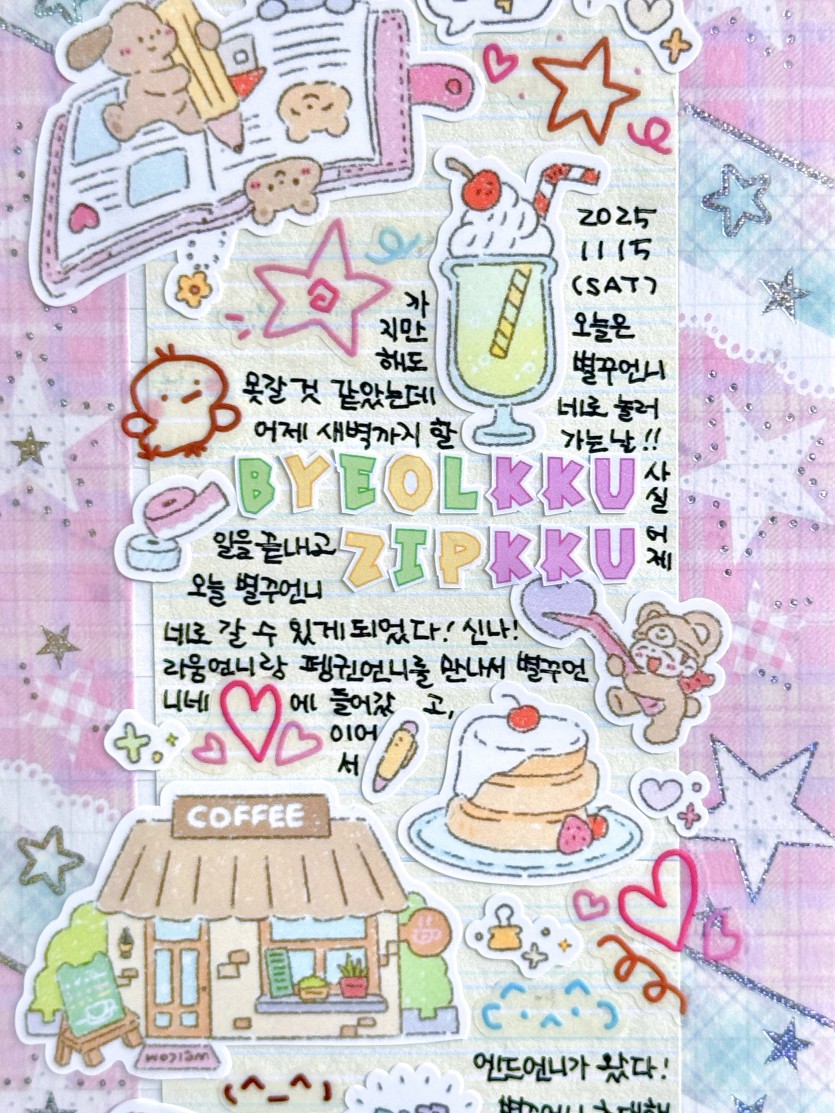 2025
11 15
(SAT)
오늘은
별꾸언니
네로 놀러
가는날!!
사
실
어
제
까
지만
해도
못갈 것 같았는데
어제 새벽까지 할
BYEOLKKU
ZIPKKU
일을 끝내고
오늘 별꾸언니
네로 갈 수 있게 되었다! 신나!
라움언니랑 펭귄언니를 만나서 별꾸언
니네 에 들어갔 고,
이어
서
COFFEE
welcom
(^_^)
엔드언니가 왔다!
별꾸언니